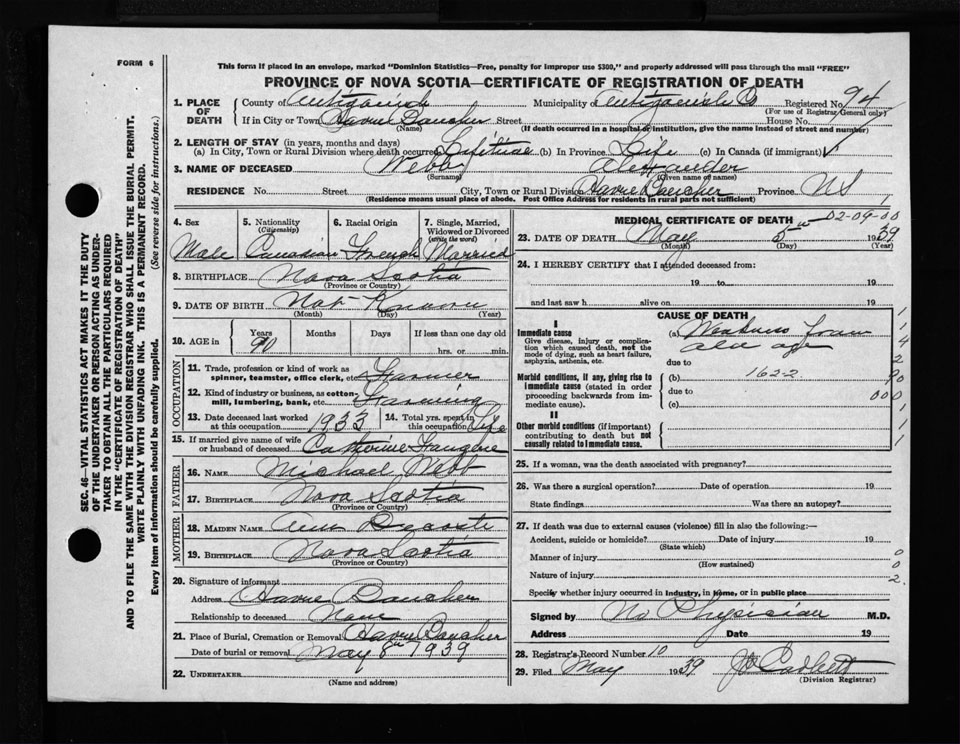 FORM 6
This form if placed in an envelope, marked "Dominion Statistics—Free, penalty for improper use $300," and properly addressed will pass through the mail "FREE"
PROVINCE OF NOVA SCOTIA—CERTIFICATE OF REGISTRATION OF DEATH
SEC. 46—VITAL STATISTICS ACT MAKES IT THE DUTY
OF THE UNDERTAKER OR PERSON ACTING AS UNDER-
TAKER TO OBTAIN ALL THE PARTICULARS REQUIRED
IN THE "CERTIFICATE OF REGISTRATION OF DEATH"
AND TO FILE THE SAME WITH THE DIVISION REGISTRAR WHO SHALL ISSUE THE BURIAL PERMIT.
WRITE PLAINLY WITH UNFADING INK. THIS IS A PERMANENT RECORD.
Every item of information should be carefully supplied. (See reverse side for instructions.)
1. PLACE OF DEATH
County of Antigonish Municipality of Antigonish Co Registered No. 94
(For use of Registrar General only)
If in City or Town Havre Boucher Street House No.
(Name) (If death occurred in a hospital or institution, give the name instead of street and number)
2. LENGTH OF STAY (in years, months and days)
(a) In City, Town or Rural Division where death occurred Lifetime (b) In Province Life (c) In Canada (if immigrant)
3. NAME OF DECEASED Webb Alexander
(Surname) (Given name or names)
RESIDENCE No. Street City, Town or Rural Division Havre Boucher Province NS
(Residence means usual place of abode. Post Office Address for residents in rural parts not sufficient)
4. Sex 5. Nationality (Citizenship) 6. Racial Origin 7. Single, Married, Widowed or Divorced (write the word)
Male Canadian French Married
8. BIRTHPLACE Nova Scotia
(Province or Country)
9. DATE OF BIRTH Not Known
(Month) (Day) (Year)
10. AGE in Years Months Days If less than one day old
90 hrs. or min.
OCCUPATION
11. Trade, profession or kind of work as spinner, teamster, office clerk, etc. Farmer
12. Kind of industry or business, as cotton-mill, lumbering, bank, etc. Farming
13. Date deceased last worked at this occupation 1933 14. Total yrs. spent in this occupation Life
15. If married give name of wife or husband of deceased Cathorine
FATHER
16. NAME Michael Webb
17. BIRTHPLACE Nova Scotia
(Province or Country)
MOTHER
18. MAIDEN NAME Ann Decoste
19. BIRTHPLACE Nova Scotia
(Province or Country)
20. Signature of informant
Address Havre Boucher
Relationship to deceased
21. Place of Burial, Cremation or Removal Havre Boucher
Date of burial or removal May 8th 1939
22. UNDERTAKER
(Name and address)
MEDICAL CERTIFICATE OF DEATH 02-09-00
23. DATE OF DEATH May 5th 1939
(Month) (Day) (Year)
24. I HEREBY CERTIFY that I attended deceased from:
19 to 19
and last saw h alive on 19
CAUSE OF DEATH
I
Immediate cause
Give disease, injury or complication which caused death, not the mode of dying, such as heart failure, asphyxia, asthenia, etc.
(a) Weakness from old age
due to
Morbid conditions, if any, giving rise to immediate cause (stated in order proceeding backwards from immediate cause).
(b) 162-2
due to
(c)
II
Other morbid conditions (if important) contributing to death but not causally related to immediate cause.
1
1
4
2
90
000
1
1
1
25. If a woman, was the death associated with pregnancy?
26. Was there a surgical operation? Date of operation 19
State findings Was there an autopsy?
27. If death was due to external causes (violence) fill in also the following:—
Accident, suicide or homicide? Date of injury 19
(State which)
Manner of injury 0
(How sustained) 0
Nature of injury 2
Specify whether injury occurred in industry, in home, or in public place
Signed by No Physician M.D.
Address Date 19
28. Registrar's Record Number 10
29. Filed May 1939
(Division Registrar)